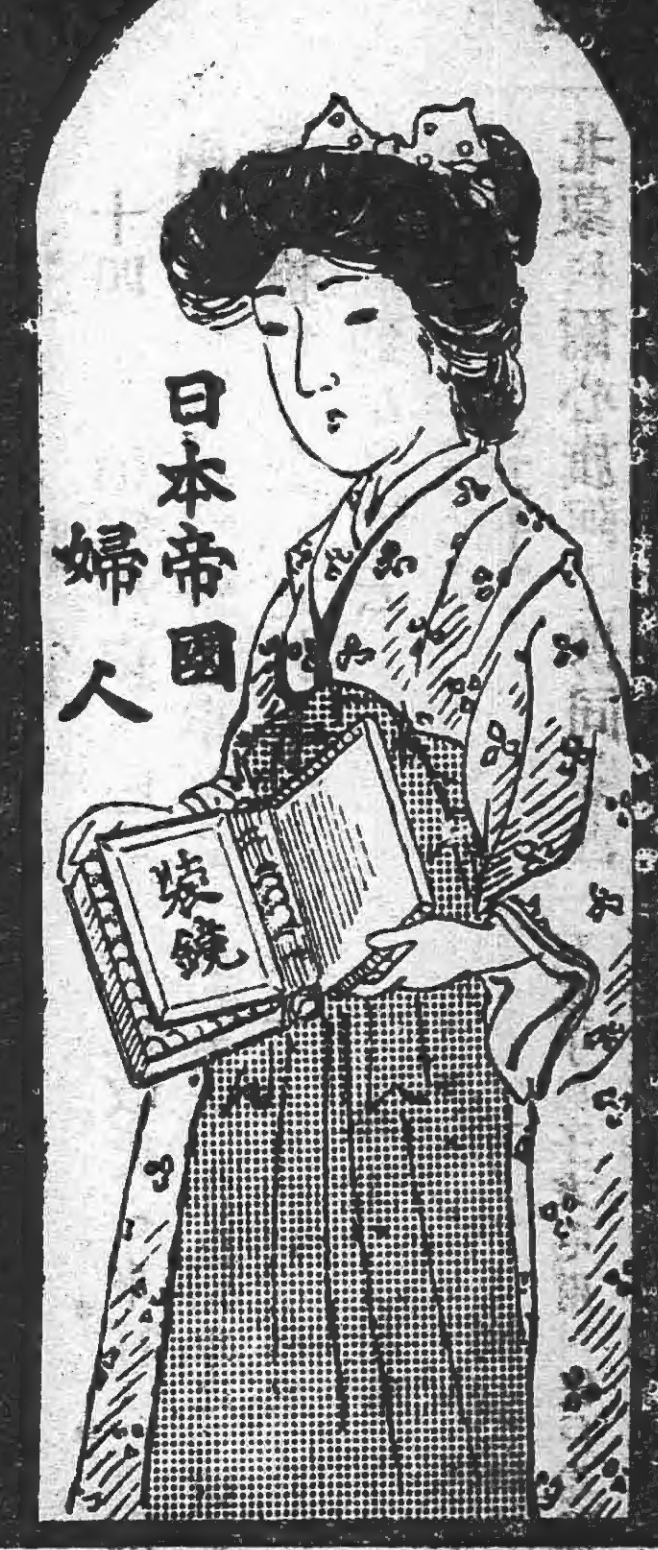 日本帝國
婦人
裝鏡